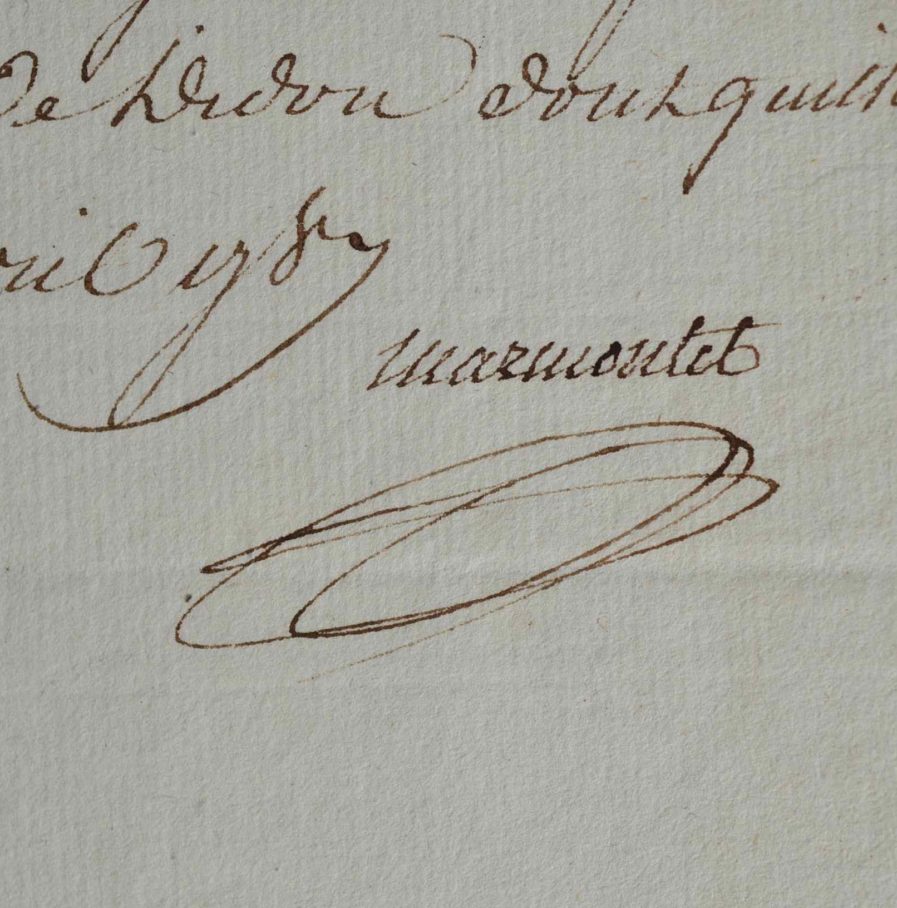 de Didon dont quitt
ril 1787
marmontel